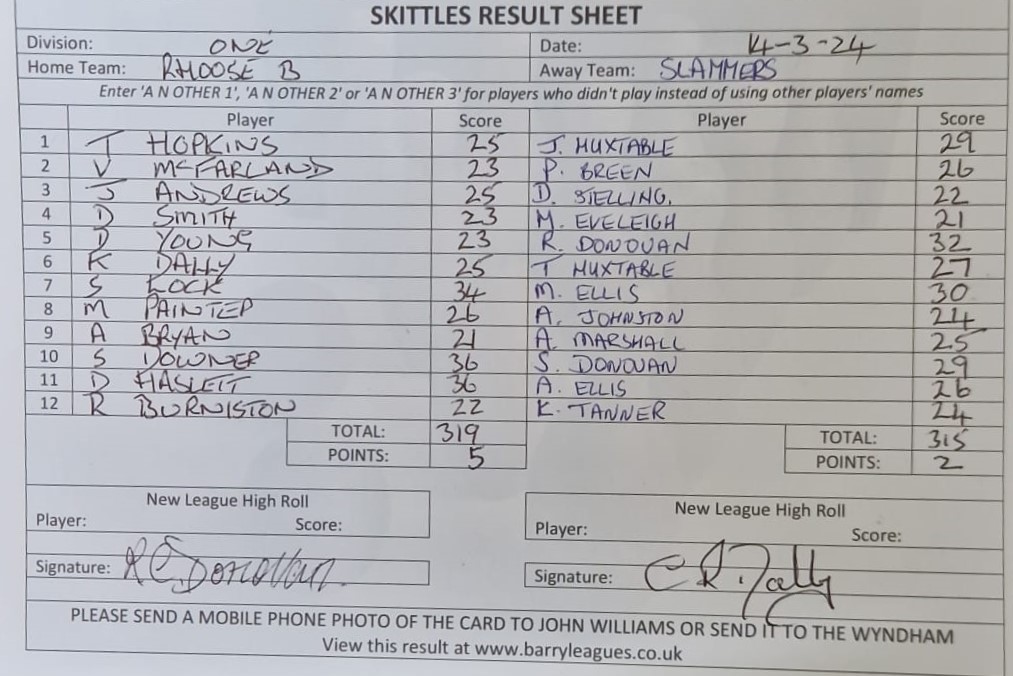 SKITTLES RESULT SHEET
Division: ONE Date: 14-3-24
Home Team: RHOOSE B Away Team: SLAMMERS
Enter 'A N OTHER 1', 'A N OTHER 2' or 'A N OTHER 3' for players who didn't play instead of using other players' names
Player Score Player Score
1 T HOPKINS 25 J. HUXTABLE 29
2 V McFARLAND 23 P. BREEN 26
3 J ANDREWS 25 D. STELLING. 22
4 D SMITH 23 M. EVELEIGH 21
5 D YOUNG 23 R. DONOVAN 32
6 K DALLY 25 T HUXTABLE 27
7 S LOCK 34 M. ELLIS 30
8 M PAINTER 26 A. JOHNSTON 24
9 A BRYAN 21 A. MARSHALL 25
10 S DOWNER 36 S. DONOVAN 29
11 D HASLETT 36 A. ELLIS 26
12 R BURNISTON 22 K. TANNER 24
TOTAL: 319 TOTAL: 315
POINTS: 5 POINTS: 2
New League High Roll New League High Roll
Player: Score: Player: Score:
Signature: R C Donovan. Signature: C R. Dally
PLEASE SEND A MOBILE PHONE PHOTO OF THE CARD TO JOHN WILLIAMS OR SEND IT TO THE WYNDHAM
View this result at www.barryleagues.co.uk